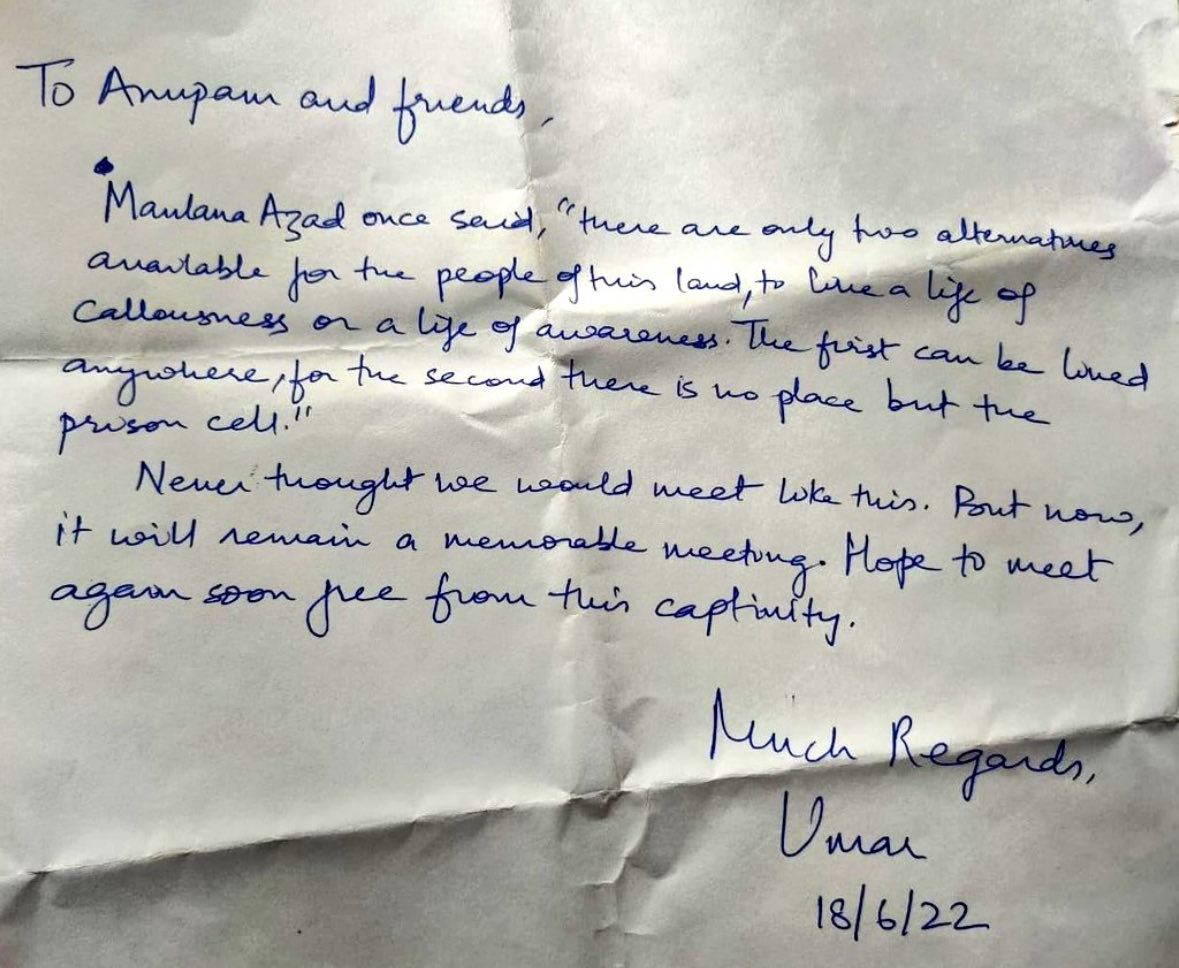 To Anupam and friends,
Maulana Azad once said, "there are only two alternatives
available for the people of this land, to live a life of
callousness or a life of awareness. The first can be lived
anywhere, for the second there is no place but the
prison cell."
Never thought we would meet like this. But now,
it will remain a memorable meeting. Hope to meet
again soon free from this captivity.
Much Regards,
Umar
18/6/22